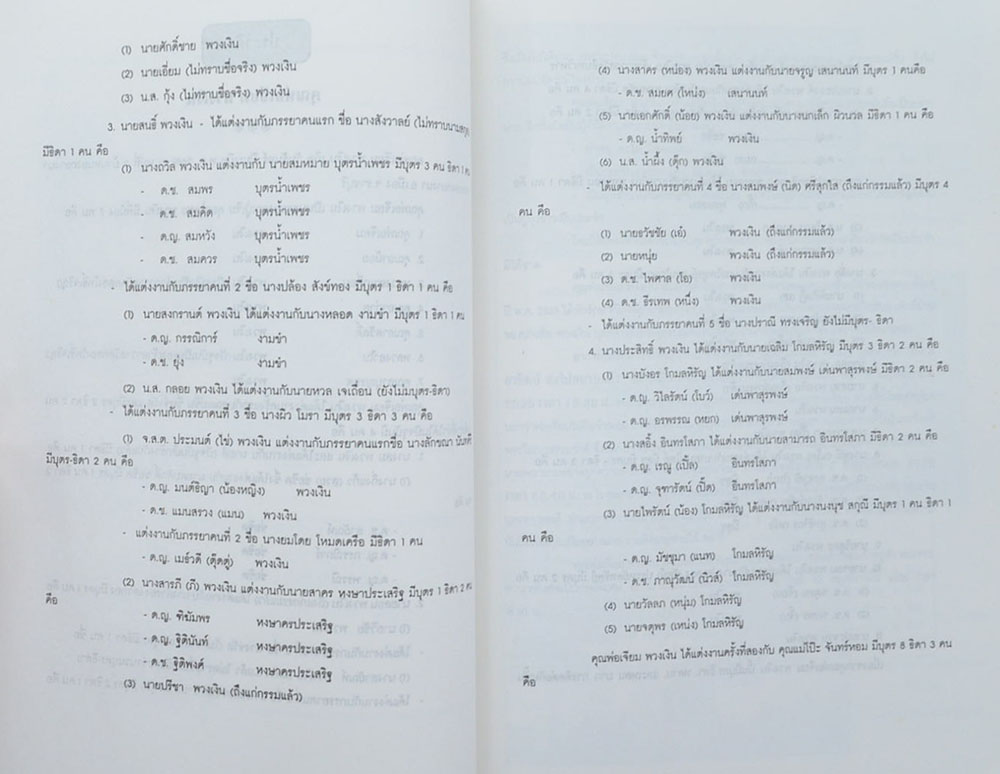 (1) นายศักดิ์ชาย พวงเงิน
(2) นายเอี่ยม (ไม่ทราบชื่อจริง) พวงเงิน
(3) น.ส. กุ้ง (ไม่ทราบชื่อจริง) พวงเงิน
3. นายสนธิ์ พวงเงิน - ได้แต่งงานกับภรรยาคนแรก ชื่อ นางสังวาลย์ (ไม่ทราบนามสกุล)
มีธิดา 1 คน คือ
(1) นางถวิล พวงเงิน แต่งงานกับ นายสมหมาย บุตรน้ำเพชร มีบุตร 3 คน ธิดา 1 คน
- ด.ช. สมพร บุตรน้ำเพชร
- ด.ช. สมคิด บุตรน้ำเพชร
- ด.ญ. สมหวัง บุตรน้ำเพชร
- ด.ช. สมควร บุตรน้ำเพชร
- ได้แต่งงานกับภรรยาคนที่ 2 ชื่อ นางปล้อง สังข์ทอง มีบุตร 1 ธิดา 1 คน คือ
(1) นายสงกรานต์ พวงเงิน ได้แต่งงานกับนางหลอด งามขำ มีบุตร 1 ธิดา 1 คน
- ด.ญ. กรรณิการ์ งามขำ
- ด.ช. ยุ่ง งามขำ
(2) น.ส. กลอย พวงเงิน ได้แต่งงานกับนายหวล เจเถื่อน (ยังไม่มีบุตร-ธิดา)
- ได้แต่งงานกับภรรยาคนที่ 3 ชื่อ นางผิว โมรา มีบุตร 3 ธิดา 3 คน คือ
(1) จ.ส.ต. ประมนต์ (ไข่) พวงเงิน แต่งงานกับภรรยาคนแรกชื่อ นางลักขณา
มีบุตร-ธิดา 2 คน คือ
- ด.ญ. มนต์ธิญา (น้องหญิง) พวงเงิน
- ด.ช. แมนสรวง (แมน) พวงเงิน
- แต่งงานกับภรรยาคนที่ 2 ชื่อ นางยมโดย โหมดเครือ มีธิดา 1 คน
- ด.ญ. เมธ์วดี (ตุ๊ดตู่) พวงเงิน
(2) นางสารภี (ภี) พวงเงิน แต่งงานกับนายสาคร หงษาประเสริฐ มีบุตร 1 ธิดา 2 คน
คือ
- ด.ญ. ฑิฆัมพร หงษาครประเสริฐ
- ด.ญ. ฐิตินันท์ หงษาครประเสริฐ
- ด.ช ฐิติพงศ์ หงษาครประเสริฐ
(3) นายปรีชา พวงเงิน (ถึงแก่กรรมแล้ว)
(4) นางสาคร (หน่อง) พวงเงิน แต่งงานกับนายจรูญ เสนานนท์ มีบุตร 1 คนคือ
- ด.ช. สมยศ (โหน่ง) เสนานนท์
(5) นายเอกศักดิ์ (น้อย) พวงเงิน แต่งงานกับนางนกเล็ก ผิวนวล มีธิดา 1 คน คือ
- ด.ญ. น้ำทิพย์ พวงเงิน
(6) น.ส. น้ำผึ้ง (ตุ๊ก) พวงเงิน
ได้แต่งงานกับภรรยาคนที่ 4 ชื่อ นางสมพงษ์ (นิด) ศรีสุกใส (ถึงแก่กรรมแล้ว) มีบุตร 4
คน คือ
(1) นายธวัชชัย (เอ๋) พวงเงิน (ถึงแก่กรรมแล้ว)
(2) นายหนุ่ย พวงเงิน (ถึงแก่กรรมแล้ว)
(3) ด.ช. ไพศาล (โอ) พวงเงิน
(4) ด.ช. ธีรเทพ (หนึ่ง) พวงเงิน
- ได้แต่งงานกับภรรยาคนที่ 5 ชื่อ นางปราณี ทรงเจริญ ยังไม่มีบุตร- ธิดา
4. นางประสิทธิ์ พวงเงิน ได้แต่งงานกับนายเฉลิม โกมลหิรัญ มีบุตร 3 ธิดา 2 คน คือ
(1) นางบังอร โกมลหิรัญ ได้แต่งงานกับนายสมพงษ์ เด่นพาสุรพงษ์ มีธิดา 2 คน คือ
- ด.ญ. วิไลรัตน์ (โบว์) เด่นพาสุรพงษ์
- ด.ญ. อรพรรณ (หยก) เด่นพาสุรพงษ์
(2) นางสอิ้ง อินทรโสภา ได้แต่งงานกับนายสามารถ อินทรโสภา มีธิดา 2 คน คือ
- ด.ญ. เรณู (เปิ้ล) อินทรโสภา
- ด.ญ. จุฑารัตน์ (ปิ๊ด) อินทรโสภา
(3) นายไพรัตน์ (น้อง) โกมลหิรัญ ได้แต่งงานกับนางนงนุช สกุณี มีบุตร 1 คน ธิดา 1
คน คือ
- ด.ญ. มัชชุมา (แนท) โกมลหิรัญ
- ด.ช. ภาณุวัฒน์ (นิวส์) โกมลหิรัญ
(4) นายวัลลภ (หนุ่ม) โกมลหิรัญ
(5) นายจตุพร (เหน่ง) โกมลหิรัญ
คุณพ่อเจียม พวงเงิน ได้แต่งงานครั้งที่สองกับ คุณแม่โป๊ะ จันทร์หอม มีบุตร 8 ธิดา 3 คน
คือ